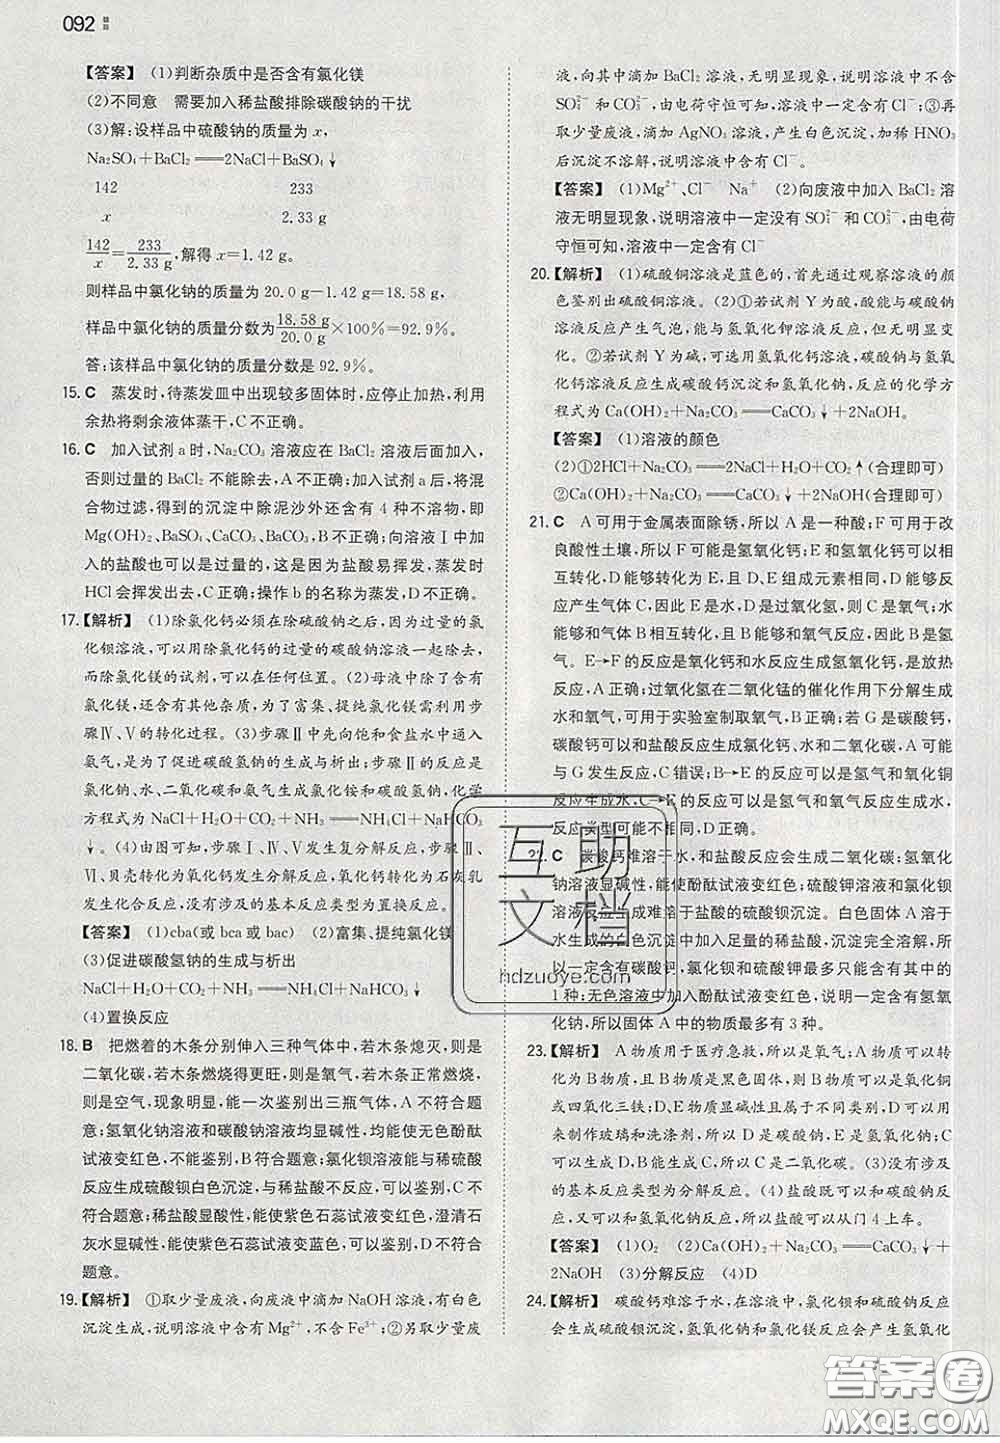 092
【答案】 (1)判断杂质中是否含有氯化镁
(2)不同意 需要加入稀盐酸排除碳酸钠的干扰
(3)解:设样品中硫酸钠的质量为 x,
Na₂SO₄+BaCl₂══2NaCl+BaSO₄↓
142 233
x 2.33 g
142/x=233/2.33 g,解得 x=1.42 g。
则样品中氯化钠的质量为 20.0 g-1.42 g=18.58 g,
样品中氯化钠的质量分数为18.58 g/20.0 g×100%=92.9%。
答:该样品中氯化钠的质量分数是 92.9%。
15. C 蒸发时,待蒸发皿中出现较多固体时,应停止加热,利用
余热将剩余液体蒸干,C 不正确。
16. C 加入试剂 a 时,Na₂CO₃ 溶液应在 BaCl₂ 溶液后面加入,
否则过量的 BaCl₂ 不能除去,A 不正确;加入试剂 a 后,将混
合物过滤,得到的沉淀中除泥沙外还含有 4 种不溶物,即
Mg(OH)₂、BaSO₄、CaCO₃、BaCO₃,B 不正确;向溶液Ⅰ中
加入的盐酸可以是过量的,这是因为盐酸易挥发,蒸发时
HCl 会挥发出去,C 正确;操作 b 的名称为蒸发,D 不正确。
17. 【解析】 (1)除氯化钙必须在除硫酸钠之后,因为过量的氯
化钡溶液,可以用除氯化钙的过量的碳酸钠溶液一起除去,
而除氯化镁的试剂,可以在任何位置。(2)母液中除了含有
氯化镁,还含有其他杂质,为了富集、提纯氯化镁需利用步
骤Ⅳ、Ⅴ的转化过程。(3)步骤Ⅱ中先向饱和食盐水中通入
氨气,是为了促进碳酸氢钠的生成与析出;步骤Ⅱ的反应是
氯化钠、水、二氧化碳和氨气生成氯化铵和碳酸氢钠,化学
方程式为 NaCl+H₂O+CO₂+NH₃══NH₄Cl+NaHCO₃
↓。(4)由图可知,步骤Ⅰ、Ⅳ、Ⅴ发生复分解反应,步骤Ⅱ、
Ⅵ、贝壳转化为氧化钙发生分解反应,氧化钙转化为石灰乳
发生化合反应,没有涉及的基本反应类型为置换反应。
【答案】 (1)cba(或 bca 或 bac) (2)富集、提纯氯化镁
(3)促进碳酸氢钠的生成与析出
NaCl+H₂O+CO₂+NH₃══NH₄Cl+NaHCO₃↓
(4)置换反应
18. B 把燃着的木条分别伸入三种气体中,若木条熄灭,则是
二氧化碳,若木条燃烧得更旺,则是氧气,若木条正常燃烧,
则是空气,现象明显,能一次鉴别出三瓶气体,A 不符合题
意;氢氧化钠溶液和碳酸钠溶液均显碱性,均能使无色酚酞
试液变红色,不能鉴别,B 符合题意;氯化钡溶液与稀硫酸
反应生成硫酸钡白色沉淀,与稀盐酸不反应,可以鉴别,C 不
符合题意;稀盐酸显酸性,能使紫色石蕊试液变红色,澄清石
灰水显碱性,能使紫色石蕊试液变蓝色,可以鉴别,D 不符合
题意。
19. 【解析】 ①取少量废液,向废液中滴加 NaOH 溶液,有白色
沉淀生成,说明溶液中含有 Mg²⁺,不含 Fe³⁺;②另取少量废
液,向其中滴加 BaCl₂ 溶液,无明显现象,说明溶液中不含
SO₄²⁻ 和 CO₃²⁻,由电荷守恒可知,溶液中一定含有 Cl⁻;③再
取少量废液,滴加 AgNO₃ 溶液,产生白色沉淀,加稀 HNO₃
后沉淀不溶解,说明溶液中含有 Cl⁻。
【答案】 (1)Mg²⁺、Cl⁻ Na⁺ (2)向废液中加入 BaCl₂ 溶
液无明显现象,说明溶液中一定没有 SO₄²⁻ 和 CO₃²⁻,由电荷
守恒可知,溶液中一定含有 Cl⁻
20. 【解析】 (1)硫酸铜溶液是蓝色的,首先通过观察溶液的颜
色鉴别出硫酸铜溶液。(2)①若试剂 Y 为酸,酸能与碳酸钠
溶液反应产生气泡,能与氢氧化钾溶液反应,但无明显变
化。②若试剂 Y 为碱,可选用氢氧化钙溶液,碳酸钠与氢氧
化钙溶液反应生成碳酸钙沉淀和氢氧化钠,反应的化学方
程式为 Ca(OH)₂+Na₂CO₃══CaCO₃↓+2NaOH。
【答案】 (1)溶液的颜色
(2)①2HCl+Na₂CO₃══2NaCl+H₂O+CO₂↑(合理即可)
②Ca(OH)₂+Na₂CO₃══CaCO₃↓+2NaOH(合理即可)
21. C A 可用于金属表面除锈,所以 A 是一种酸;F 可用于改
良酸性土壤,所以 F 可能是氢氧化钙;E 和氢氧化钙可以相
互转化,D 能够转化为 E,且 D、E 组成元素相同,D 能够反
应产生气体 C,因此 E 是水,D 是过氧化氢,则 C 是氧气;水
能够和 B 相互转化,且 B 能够和氧气反应,因此 B 是氢
气。E→F 的反应是氧化钙和水反应生成氢氧化钙,是放热
反应,A 正确;过氧化氢在二氧化锰的催化作用下分解生成
水和氧气,可用于实验室制取氧气,B 正确;若 G 是碳酸钙,
碳酸钙可以和盐酸反应生成氯化钙、水和二氧化碳,A 可能
与 G 发生反应,C 错误;B→E 的反应可以是氢气和氧化铜
反应生成水,C→E 的反应可以是氢气和氧气反应生成水,
反应类型可能不相同,D 正确。
22. C 碳酸钙难溶于水,和盐酸反应会生成二氧化碳;氢氧化
钠溶液显碱性,能使酚酞试液变红色;硫酸钾溶液和氯化钡
溶液反应生成难溶于盐酸的硫酸钡沉淀。白色固体 A 溶于
水生成的白色沉淀中加入足量的稀盐酸,沉淀完全溶解,所
以一定含有碳酸钙,氯化钡和硫酸钾最多只能含有其中的
1 种;无色溶液中加入酚酞试液变红色,说明一定含有氢氧
化钠,所以固体 A 中的物质最多有 3 种。
23. 【解析】 A 物质用于医疗急救,所以是氧气;A 物质可以转
化为 B 物质,且 B 物质是黑色固体,则 B 物质可以是氧化铜
或四氧化三铁;D、E 物质显碱性且属于不同类别,D 可以用
来制作玻璃和洗涤剂,所以 D 是碳酸钠,E 是碱,可以是氢
氧化钙;B 能反应生成 C,则 C 是二氧化碳。(3)没有涉及
的基本反应类型为分解反应。(4)盐酸既可以和碳酸钠反
应,又可以和氢氧化钠反应,所以盐酸可以从门 4 上车。
【答案】 (1)O₂ (2)Ca(OH)₂+Na₂CO₃══CaCO₃↓+
2NaOH (3)分解反应 (4)D
24. 【解析】 碳酸钙难溶于水,在溶液中,氯化钡和硫酸钠反应
会生成硫酸钡沉淀,氢氧化钠和氯化镁反应会产生氢氧化
互助
文档
hdzuoye.com
答案圈
MXQE.COM